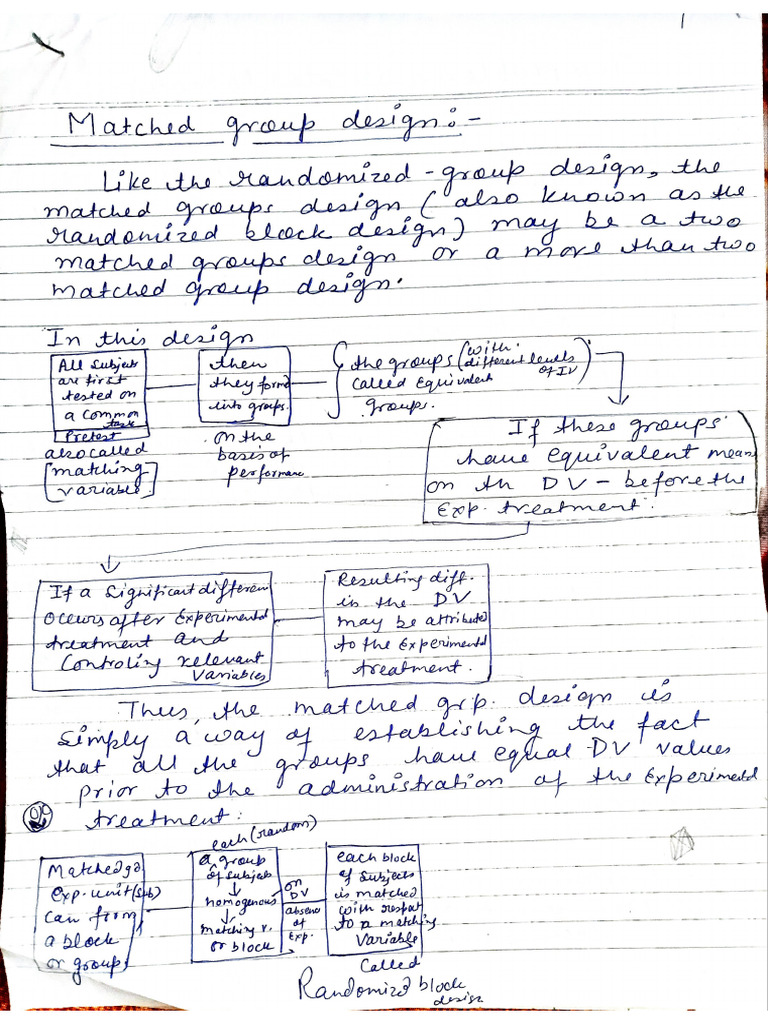 Matched group design:-
Like the randomized-group design, the
matched groups design (also known as the
randomized block design) may be a two
matched groups design or a more than two
matched group design.
In this design
All Subjects
are first
tested on
a common
task
Pretest
also called
[matching
variable]
then
they form
into groups.
on the
basis of
performance
the groups (with different levels of IV)
called Equivalent
groups.
If these groups
have equivalent mean
on th DV - before the
Exp. treatment.
If a Significant differen
occurs after Experimental
treatment and
Controling relevant
variables
Resulting diff.
in the DV
may be attributed
to the Experimental
treatment.
Thus, the matched grp. design is
simply a way of establishing the fact
that all the groups have equal DV values
prior to the administration of the Experimental
treatment:
Matched
exp. unit (sub)
can form
a block
or group
each (random)
a group
of subjects
homogenous
matching v.
or block
on
DV
absence
of
Exp.
each block
of subjects
is matched
with respect
to a matching
variable
called
Randomized block
design